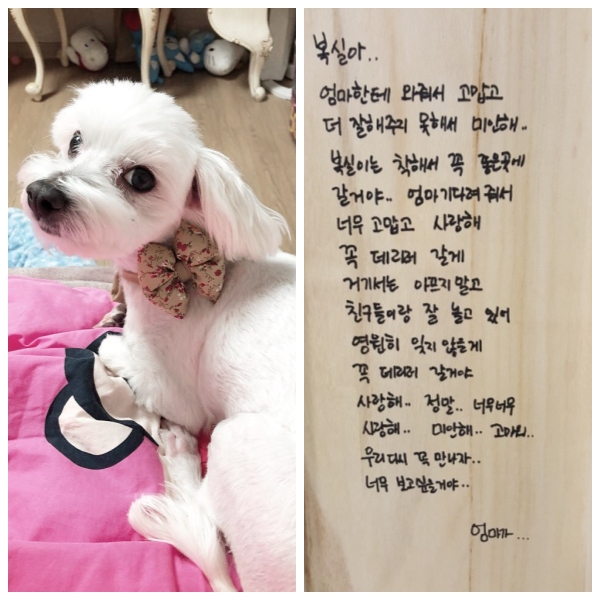 복실아..
엄마한테 와줘서 고맙고
더 잘해주지 못해서 미안해..
복실이는 착해서 꼭 좋은곳에
갈거야.. 엄마기다려줘서
너무 고맙고 사랑해
꼭 데리러 갈게
거기서는 아프지말고
친구들이랑 잘 놀고 있어
영원히 잊지 않을게
꼭 데리러 갈거야
사랑해.. 정말.. 너무너무
사랑해.. 미안해.. 고마워..
우리다시 꼭 만나자..
너무 보고싶을거야..
엄마가...